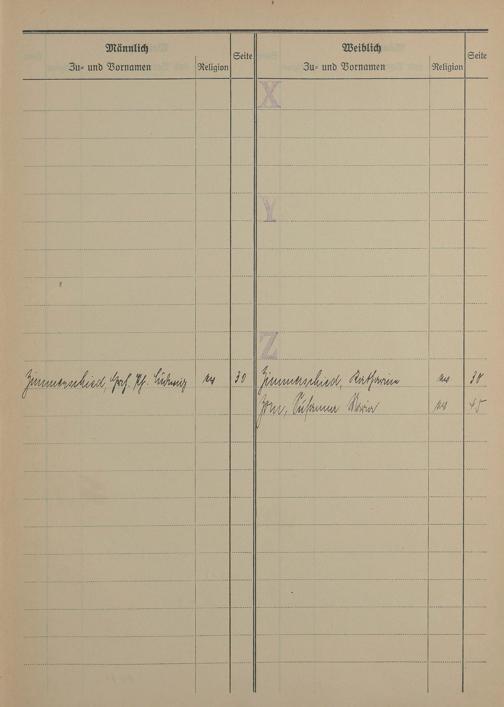 Männlich
Zu- und Vornamen
Religion
Seite
Weiblich
Zu- und Vornamen
Religion
Seite
X
Y
Z
Zimmerschied, Ph. Ludwig ev 30
Zimmerschied, Katharine ev 30
Zorn, Susanna Maria ev 45